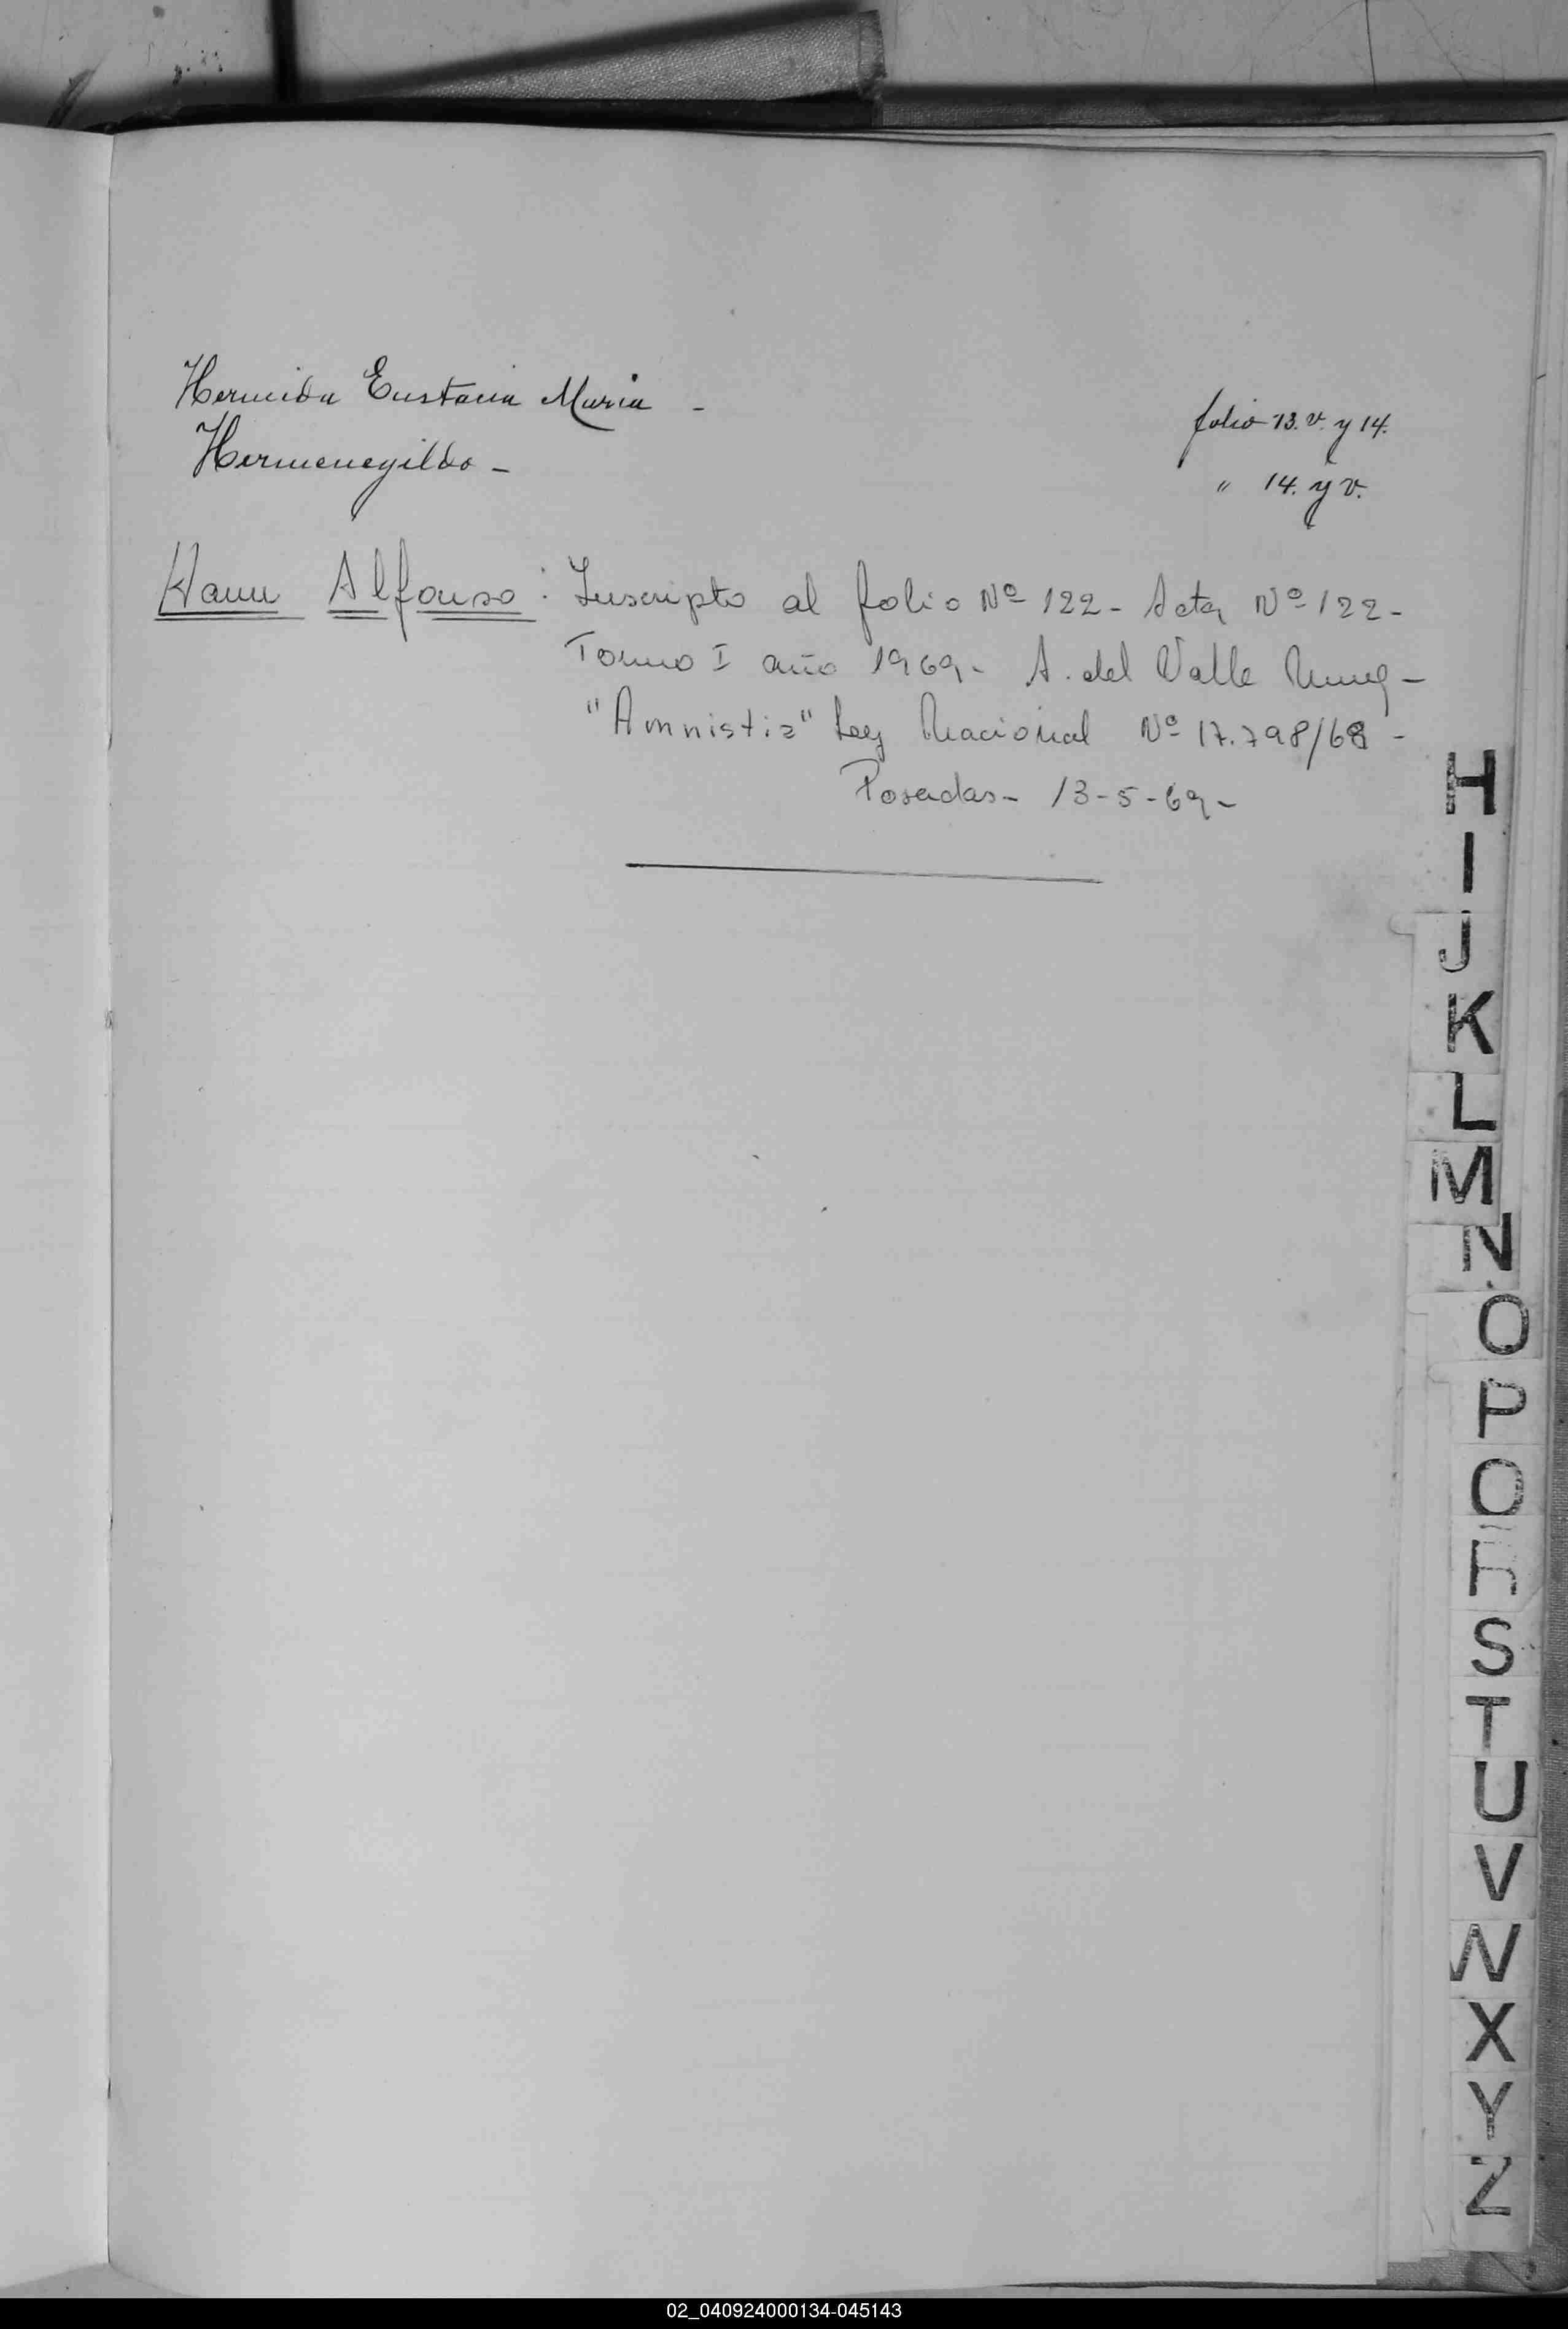 Hermida Eustacia Maria - folio 13. v. y 14.
Hermenegildo - " 14. y v.
Hann Alfonso: Inscripto al folio Nº 122 - Acta Nº 122 -
Tomo I año 1969 - A. del Valle
"Amnistia" Ley Nacional Nº 17.798/68 -
Posadas - 13-5-69 -
H
I
J
K
L
M
N
O
P
Q
R
S
T
U
V
W
X
Y
Z
02_040924000134-045143